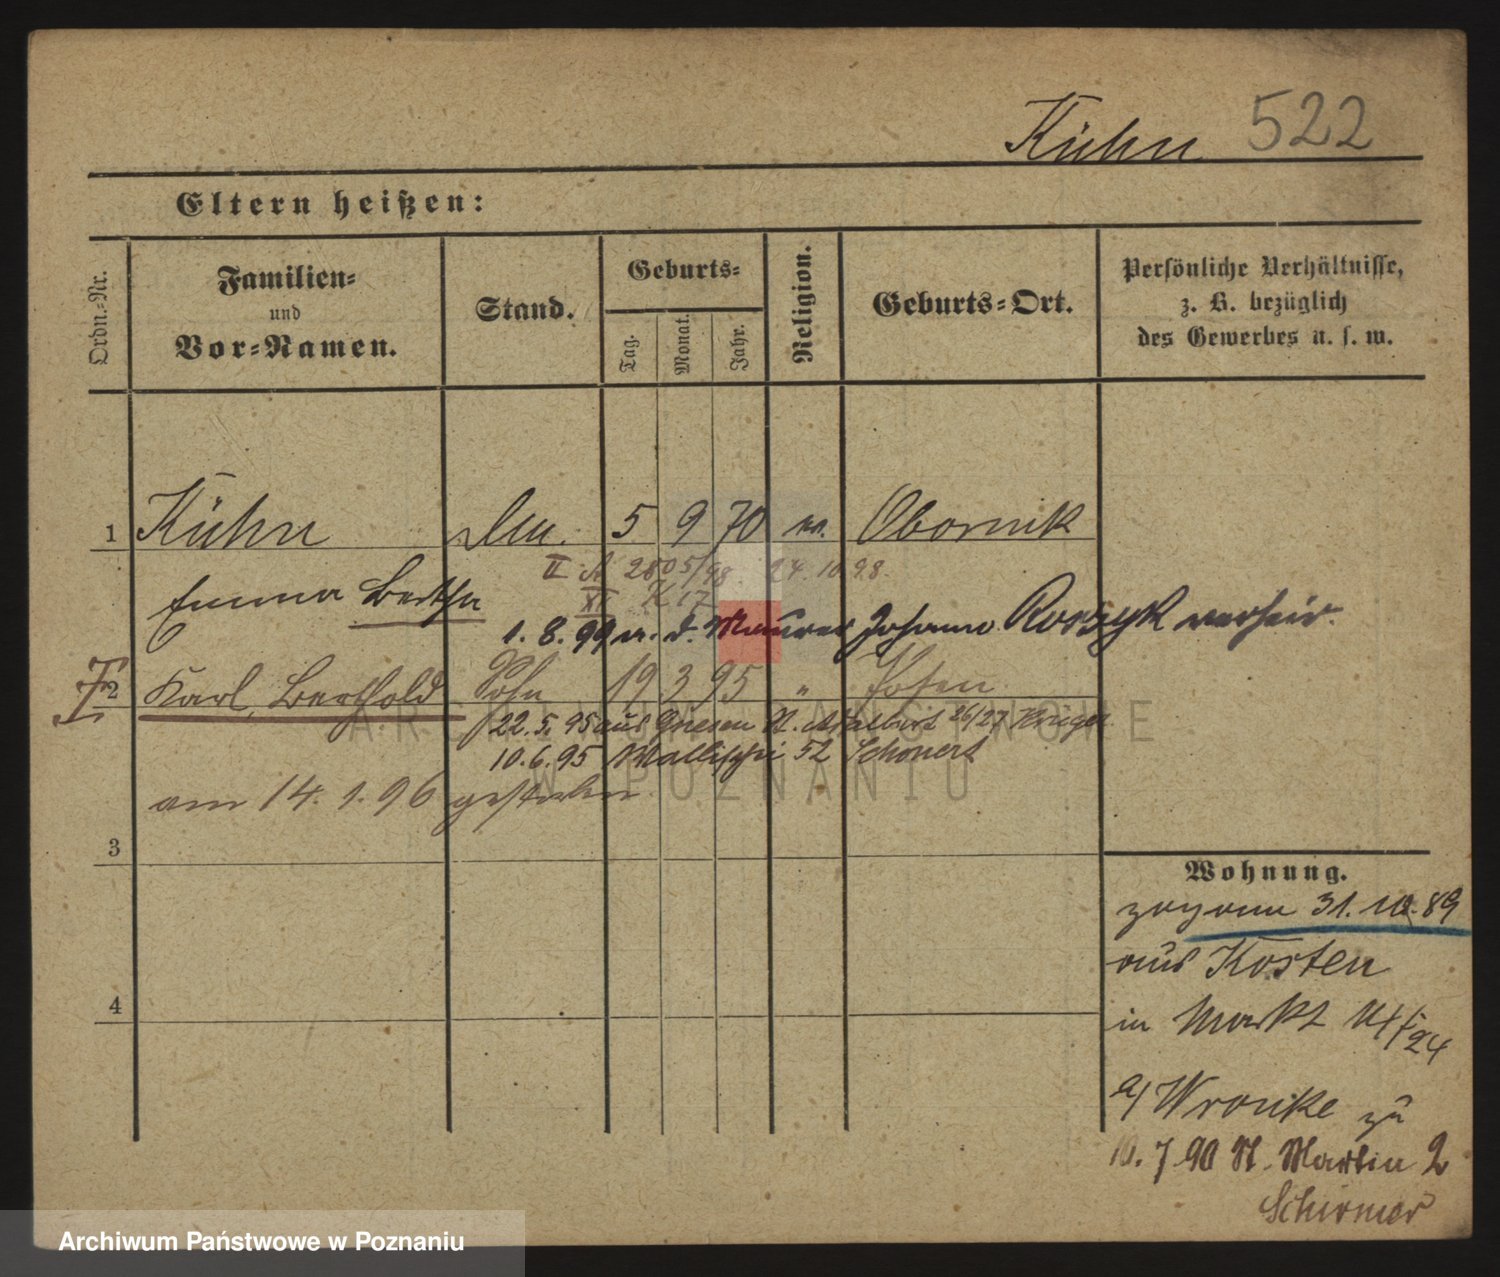 Kühn 522
Eltern heißen:
Ordn.-Nr.
Familien-
und
Vor-Namen.
Stand.
Geburts-
Tag.
Monat.
Jahr.
Religion.
Geburts-Ort.
Persönliche Verhältnisse,
z. B. bezüglich
des Gewerbes u. s. w.
1 Kühn 5 9 70 Obornik
II A 2805/98 24.10.98.
Emma Bertha
XI K 17
1. 8. 99 m. d. Maurer Johann verheir.
2 Karl, Berthold Sohn 19 3 95 " Posen
22. 5. 95 aus Gnesen St. Adalbert 26/27 Krüger
10. 6. 95 Wallischei 52 Schonert
am 14. 1. 96 gestorben
3
4
Wohnung.
zugezog. 31. 10. 89
aus Kosten
in Markt
24
b/ Wronke zu
10. 7. 90 St. Martin 2
Schirmer
ARCHIWUM PAŃSTWOWE
W POZNANIU
Archiwum Państwowe w Poznaniu